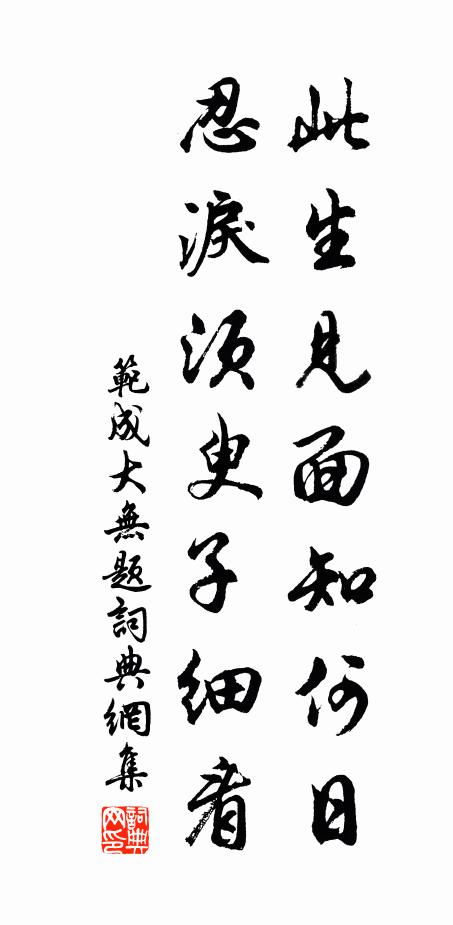 此生見面知何日
忍淚須臾子細看
範成大無題詞典網集
詞典网印